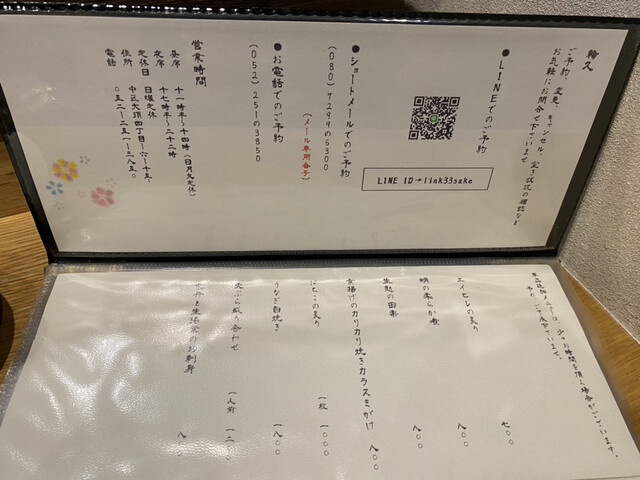 輪久
ご予約、変更、キャンセル、空き状況の確認など
お気軽にお問合せ下さいませ
●LINEでのご予約
LINE ID→link33sake
●ショートメールでのご予約
(080)7299の6300
(メール専用番号)
●お電話でのご予約
(052)251の3850
営業時間
昼席 十一時半〜十四時(日月火定休)
夜席 十七時半〜二十二時
定休日 日曜定休
住所 中区大須四丁目一の六一の十五、
電話 〇五二ー二五一ー三八五〇
お時間を頂く場合がございます。
エイヒレの炙り 七〇〇
蛸の柔らか煮 八〇〇
生麩の田楽 八〇〇
京揚げのカリカリ焼きカラスミがけ 八〇〇
ばちこの炙り 一枚 一〇〇〇
うなぎ白焼き 一八〇〇
天ぷら盛り合わせ 一人前 一二〇〇
雲丹と生湯葉のお刺身